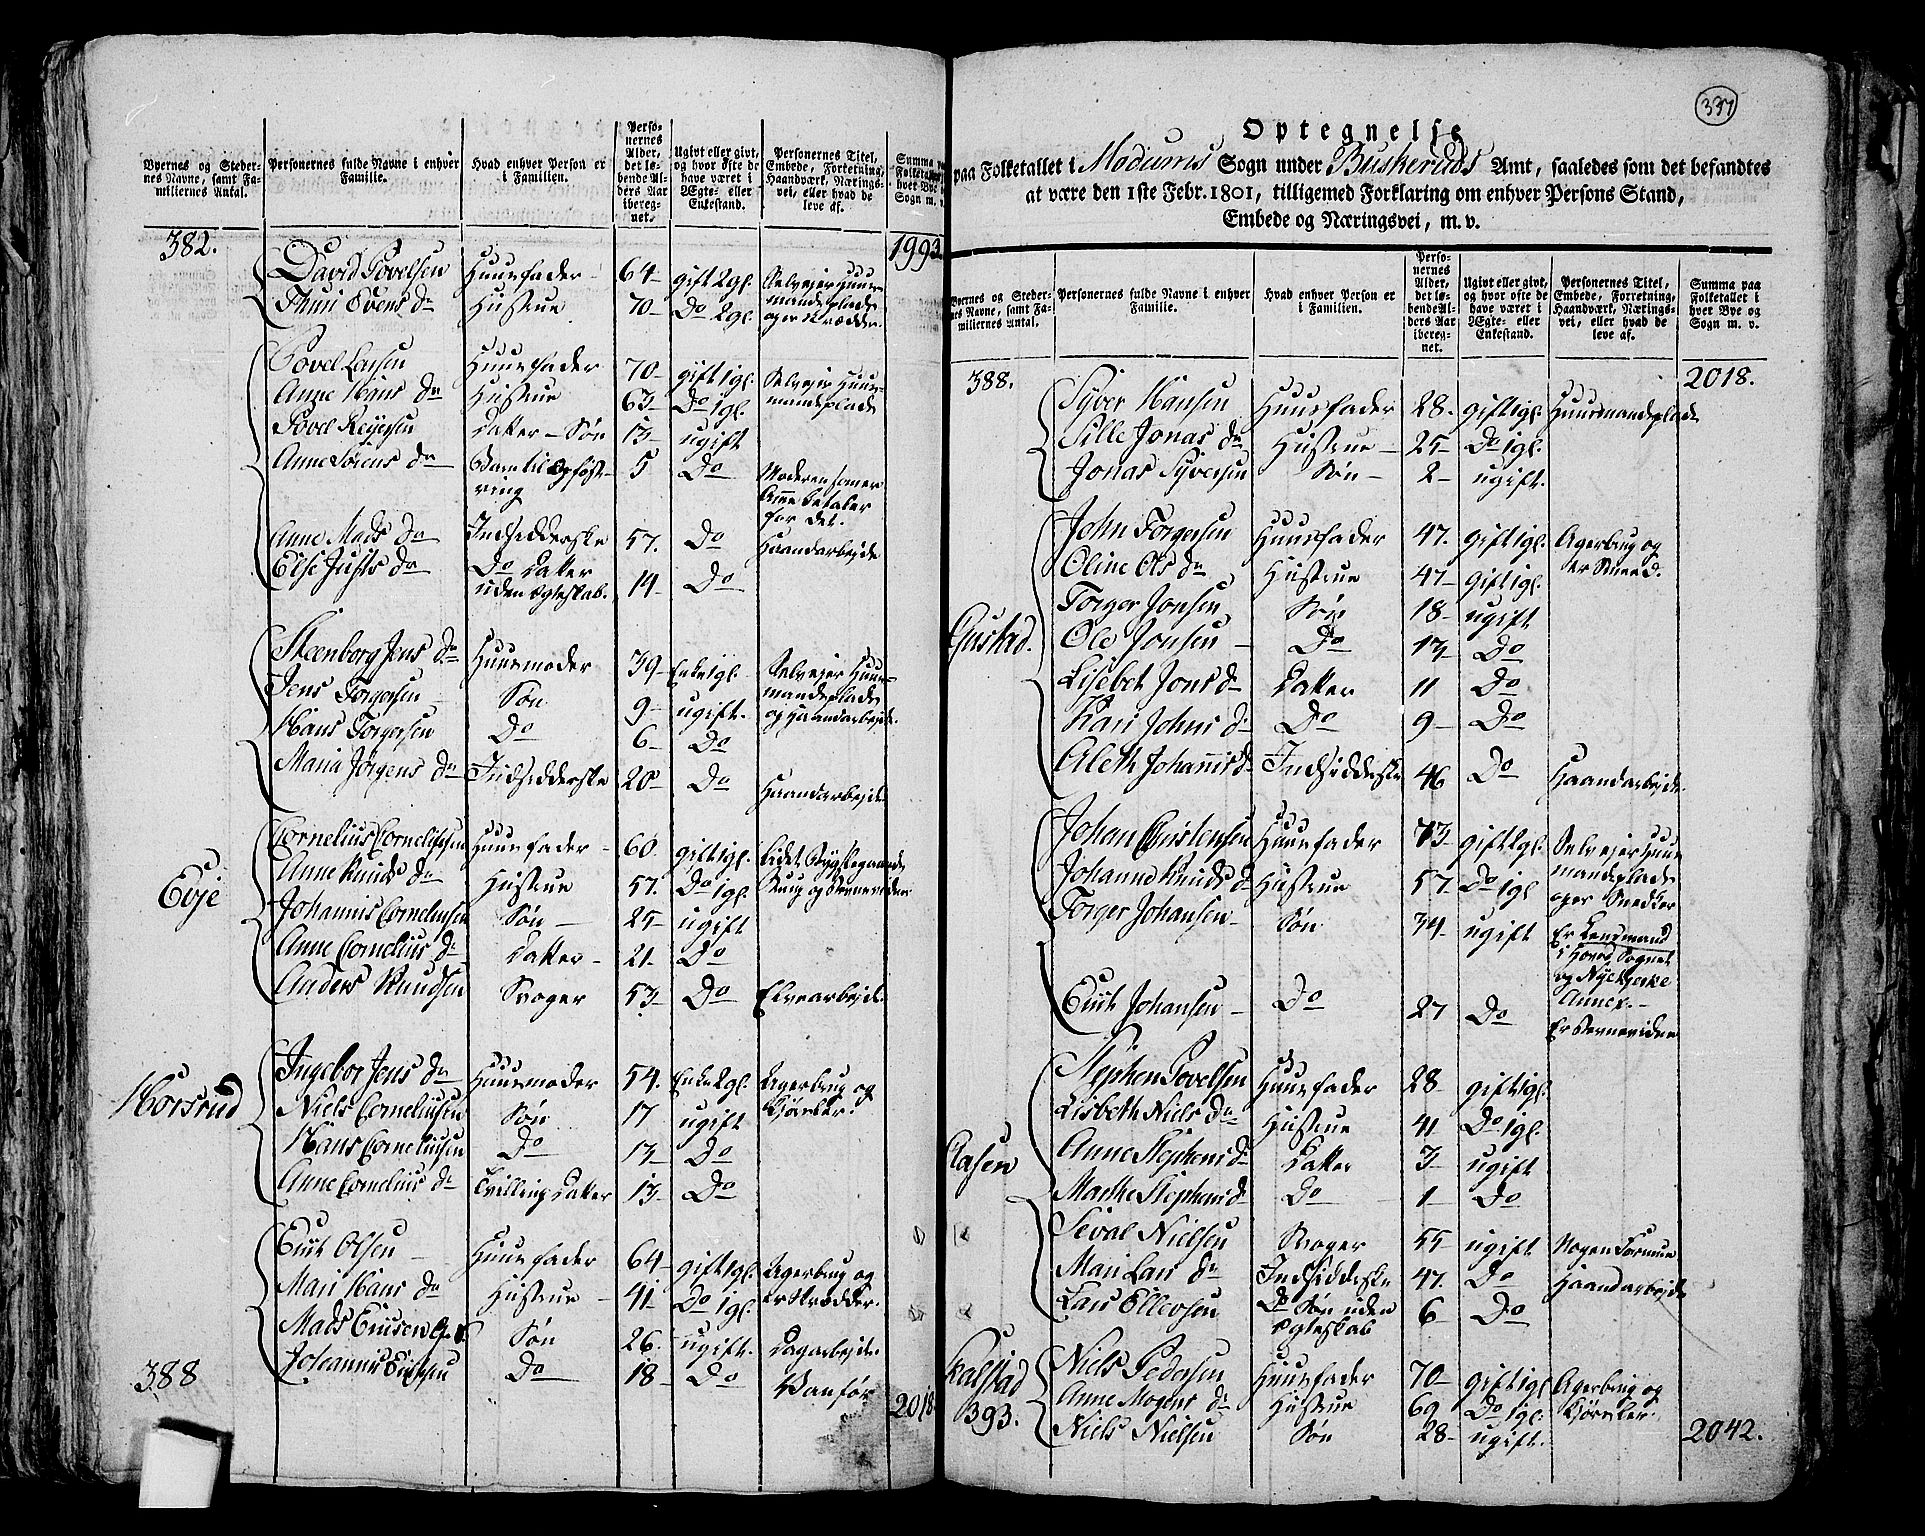 Byernes og Steder-
nes Navne, samt Fa-
miliernes Antal.
Personernes fulde Navne i enhver
Familie.
Hvad enhver Person er
i Familien.
Perso-
nernes
Alder,
det lø-
bende Al-
ders Aar
ibereg-
net.
Ugivt eller givt,
og hvor ofte de
have været i
Ægte- eller
Enkestand.
Personernes Titel,
Embede, Forretning,
Haandværk, Nærings-
vei, eller hvad de
leve af.
Summa paa
Folketallet i
hver Bye og
Sogn m. v.
382. 1993.
David Povelsen Huusfader 64 gift 2gl. Selvejer Huus-
mandsplads
og er Skrædder.
Thuri Svens Dr Hustrue 70 Do 2gl.
Povel Larsen Huusfader 70 gift 1gl. Selvejer Huus-
mandsplads
Anne Hans Dr Hustrue 63 Do 1gl.
Povel Reyersen Datter-Søn 13 ugift
Anne Sørens Dr Barn til Opføst-
ring 5 Do Moderen som er
Amme betaler
for det.
Anne Mads Dr Indsidderske 57. Do Haandarbejde
Else Justs Dr Do Datter
uden Egteskab. 19 Do
Steenborg Jens Dr Huusmoder 39 Enke 1gl. Selvejer Huus-
mandsplads
og Haandarbejde.
Jens Torgersen Søn 9 ugift.
Hans Torgersen Do 6 Do
Maria Jørgens Dr Indsidderske 20 Do Haandarbejde
Evje
Cornelius Cornelissen Huusfader 60 gift 1gl. Lidet Bygslegaards
Brug og Børnevider
Anne Knuds Dr Hustrue 57. Do 1gl.
Johannis Corneliusen Søn 25 ugift
Anne Cornelius Dr Datter 21. Do
Anders Knudsen Svoger 53 Do Elvearbejde.
Horsrud
Ingebor Jens Dr Huusmoder 54. Enke 2gl. Agerbrug og
Kjørsler.
Niels Corneliusen Søn 17 ugift
Hans Corneliusen Do 13 Do
Anne Cornelius Dr Tvilling Datter 13 Do
Eriik Olsen Huusfader 64 gift 1gl. Agerbrug og
er Skrædder.
Mari Hans Dr Hustrue 41 Do 1gl.
Mads Eriksen Søn 26. ugift. Dagarbejde
Johannis Eriksen Do 18 Do Vanfør
388 2018
337
Optegnelse
paa Folketallet i Modums Sogn under Buskeruds Amt, saaledes som det befandtes
at være den 1ste Febr. 1801, tilligemed Forklaring om enhver Persons Stand,
Embede og Næringsvei, m. v.
Byernes og Steder-
nes Navne, samt Fa-
miliernes Antal.
Personernes fulde Navne i enhver
Familie.
Hvad enhver Person er
i Familien.
Perso-
nernes
Alder,
det lø-
bende Al-
ders Aar
ibereg-
net.
Ugivt eller givt,
og hvor ofte de
have været i
Ægte- eller
Enkestand.
Personernes Titel,
Embede, Forretning,
Haandværk, Nærings-
vei, eller hvad de
leve af.
Summa paa
Folketallet i
hver Bye og
Sogn m. v.
388. 2018.
Syver Hansen Huusfader 28. gift 1gl. Huusmandsplads
Sille Jonas Dr Hustrue 25 Do 1gl.
Jonas Syversen Søn 2 ugift.
Gustad.
John Torgersen Huusfader 47. gift 1gl. Agerbrug og
er Smed.
Oline Ols Dr Hustrue 47 gift 1gl.
Torger Jonsen Søn 18 ugift
Ole Jonsen Do 13 Do
Lisebet Jons Dr Datter 11 Do
Kari Johns Dr Do 9 Do
Aleth Johannis Dr Indsidderske 46 Do Haandarbejde
Johan Christensen Huusfader 73 gift 1gl. Selvejer Huus
mandsplads
og er Snedker
Johanne Knuds Dr Hustrue 57. Do 1gl
Torger Johansen Søn 34 ugift Er Lensmand
i Hoved Sognet
og Nykjerke
Annex.
Eriik Johansen Do 27 Do Er Børnevider
Aasen
Stephen Povelsen Huusfader 28 gift 1gl.
Lisbeth Niels Dr Hustrue 41 Do 1gl.
Anne Stephens Dr Datter 3 ugift
Marthe Stephens Dr Do 1 Do
Seval Nielsen Svoger 55 ugift Nogen Formue
Mari Lars Dr Indsidderske 47. Do Haandarbejde
Lars Ellevsen Do Søn uden
Egteskab 6 Do
Kalstad
393.
Niels Pedersen Huusfader 70 gift 1gl Agerbrug og
Kjørsler.
Anne Mogens Dr Hustrue 69 Do 1gl.
Niels Nielsen Søn 28 ugift. 2042.